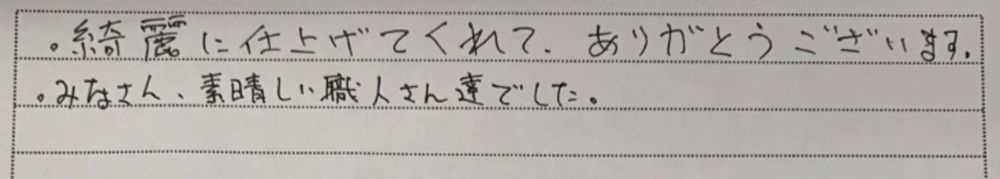 。綺麗に仕上げてくれて、ありがとうございます。
。みなさん、素晴しい職人さん達でした。